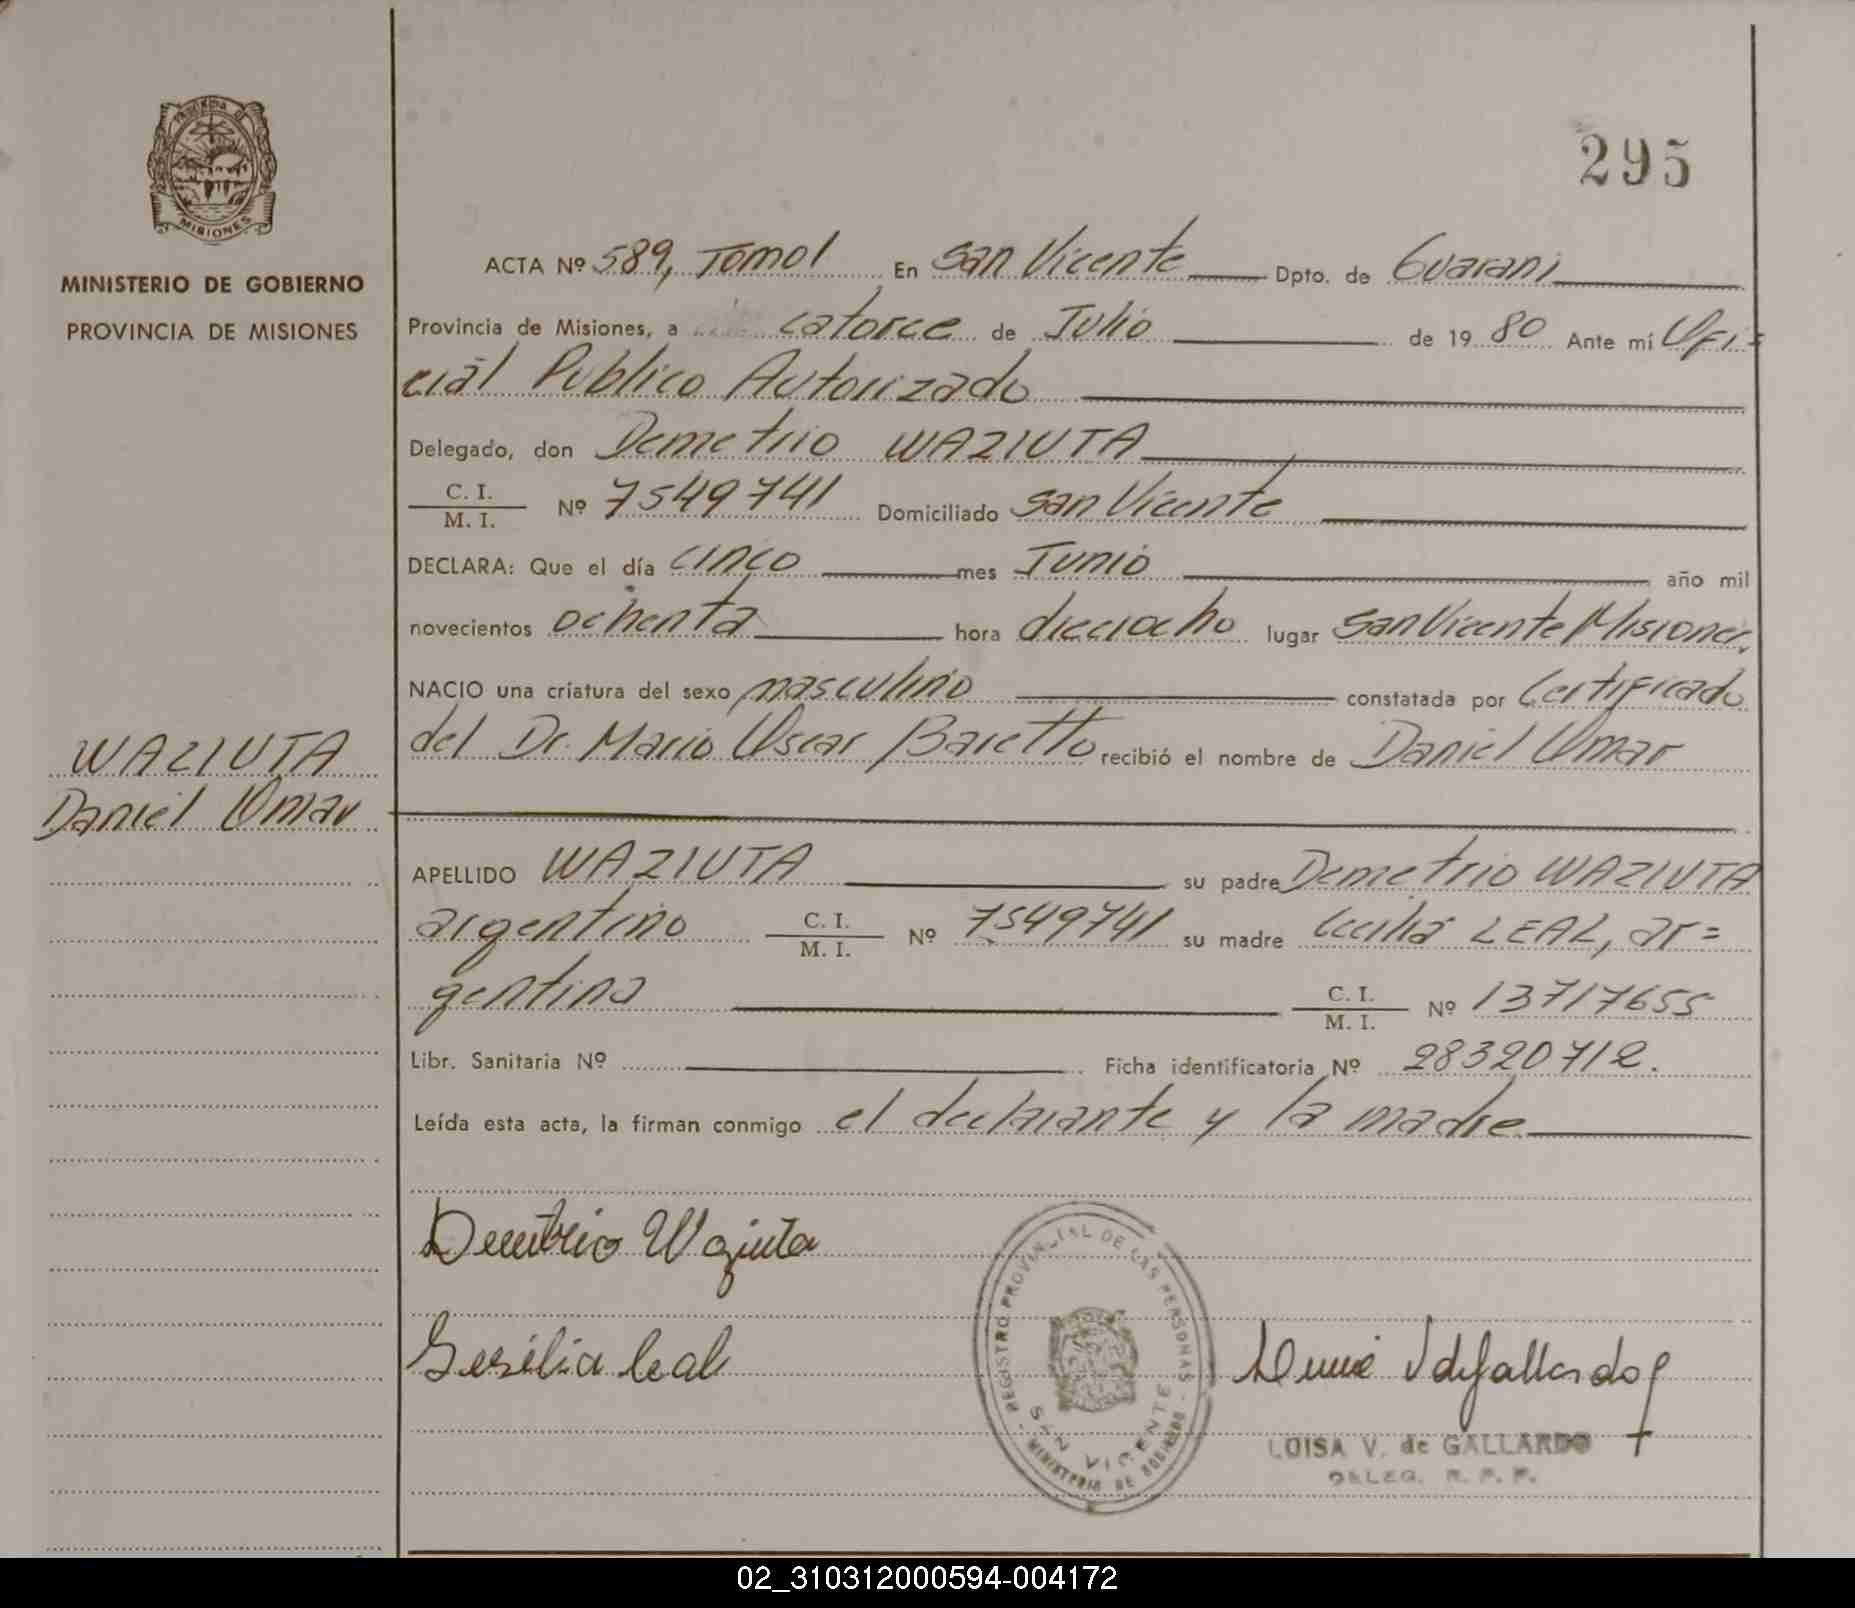 PROVINCIA DE
MISIONES
MINISTERIO DE GOBIERNO
PROVINCIA DE MISIONES
WAZIUTA
Daniel Omar
295
ACTA Nº 589, Tomo I En San Vicente Dpto. de Guarani
Provincia de Misiones, a catorce de Julio de 1980 Ante mí Ofi=
cial Publico Autorizado
Delegado, don Demetrio WAZIUTA
C. I. / M. I. Nº 7549741 Domiciliado San Vicente
DECLARA: Que el día cinco mes Junio año mil
novecientos ochenta hora dieciocho lugar San Vicente Misiones
NACIO una criatura del sexo masculino constatada por Certificado
del Dr. Mario Oscar Baretto recibió el nombre de Daniel Omar
APELLIDO WAZIUTA su padre Demetrio WAZIUTA
argentino C. I. / M. I. Nº 7549741 su madre Cecilia LEAL, ar=
gentina C. I. / M. I. Nº 13717655
Libr. Sanitaria Nº Ficha identificatoria Nº 28320712.
Leída esta acta, la firman conmigo el declarante y la madre
Demetrio Waziuta
Sesilia leal
REGISTRO PROVINCIAL DE LAS PERSONAS
SAN VICENTE
MINISTERIO DE GOBIERNO
LUISA V. de GALLARDO
DELEG. R. P. P.
02_310312000594-004172